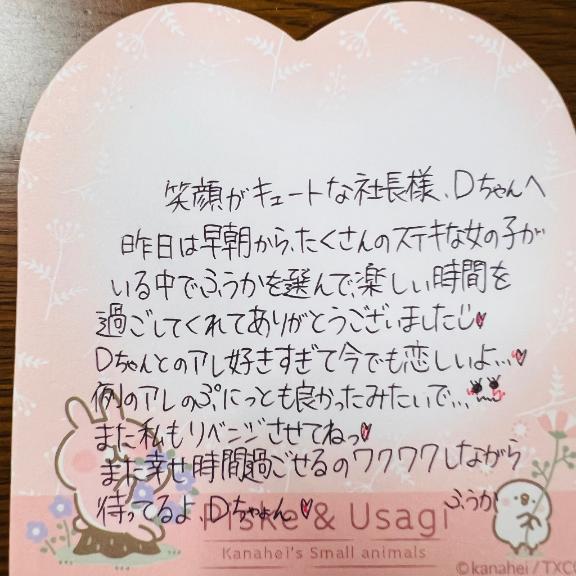 笑顔がキュートな社長様、Dちゃんへ
昨日は早朝から、たくさんのステキな女の子が
いる中でふうかを選んで、楽しい時間を
過ごしてくれてありがとうございました
Dちゃんとのアレ好きすぎて今でも恋しいよ…
例のアレのぷにっとも良かったみたいで…
また私もリベンジさせてねっ
また幸せ時間過ごせるのワクワクしながら
待ってるよDちゃん
ふうか
Piske & Usagi
Kanahei's Small animals
©kanahei / TXC